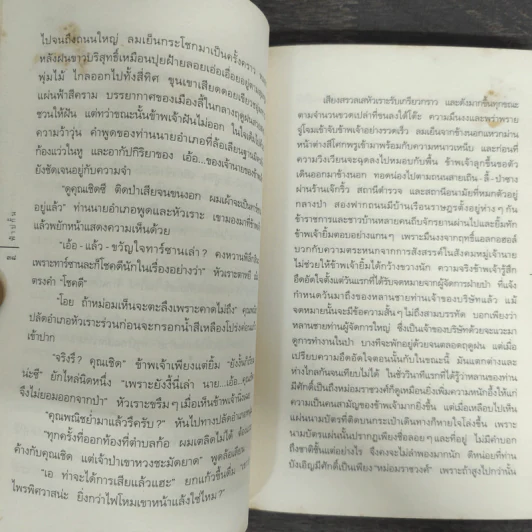 ไปจนถึงถนนใหญ่ ลมเย็นกระโชกมาเป็นครั้งคราว
หลังฝนขาวบริสุทธิ์เหมือนปุยฝ้ายลอยเอื่อย
พุ่มไม้ ไกลออกไปทั้งสี่ทิศ ขุนเขาเสียด
แผ่นฟ้าสีคราม บรรยากาศของเมือง
ชวนให้ฝัน แต่ทว่าขณะนั้นข้าพเจ้าฝันไม่ออก
ความว้าวุ่น คำพูดของท่านนายอำเภอที่
ก้องแว่วในหู และอากัปกิริยาของ เอ้อ...ของเจ้านาย
ยังชัดเจนอยู่กับความจำ
"ดูคุณเชิดซี ติดป่าเสียจนขนงอก
อยู่แล้ว" ท่านนายอำเภอพูดและหัวเราะ เขามองมาที่
แล้วพยักหน้าแสดงความเห็นด้วย
"เอ้อ - แล้ว - ขวัญใจทาร์ซานเล่า ?
เพราะทาร์ซานละก็โชคดีนักในเรื่องอย่างว่า" หัวเราะ
ตรงคำ "โชคดี"
"โอย ถ้าหม่อมเห็นจะตะลึงเพราะคาดไม่ถึง"
ปลัดอำเภอหัวเราะร่วนก่อนจะกรอกน้ำสีเหลือง
เข้าปาก
"จริงรึ ? คุณเชิด" ข้าพเจ้าเพียงแต่ยิ้ม
น่ะซี" ยักไหล่นิดหนึ่ง "เพราะยังงี้นี่เล่า นาย...เอ้อ...คุณ
จึงไม่ยอมออกจากป่า" หัวเราะขรึม ๆ เมื่อเห็นข้าพเจ้า
"คุณพณิชย์มาแล้วรึครับ ?" หันไปทาง
"ทุกครั้งที่ออกท้องที่ตำบลก้อ ผมเตลิดไม่ได้
ค้างกับคุณเชิด แต่เจ้าป่าเขาหวงชะมัดยาด"
"เอ ท่าจะได้การเสียแล้วแฮะ" ยกแก้วขึ้นดื่ม
ไพรพิศวาสน่ะ ยิ่งกว่าไฟไหม้เขาหน้าแล้งใช่ไหม ?"
เสียงสรวลเสหัวเราะรับเกรียวกราว และดังมากขึ้นทุกขณะ
ตามจำนวนขวดเปล่าที่ขนลงใต้โต๊ะ ความมึนงงและพร่าพราย
จู่โจมเข้าจับข้าพเจ้าอย่างรวดเร็ว ลมเย็นจากข้างนอกแหวกม่าน
หน้าต่างสีโศกพรูเข้ามาพร้อมกับความหนาวเหน็บ และก่อนที่
ความวิงเวียนจะฉุดลงไปหมอบกับพื้น ข้าพเจ้าลุกขึ้นขอตัว
เดินออกมาข้างนอก ทอดน่องไปตามถนนสายเถิน-ลี้-ป่าซาง
ผ่านร้านเจ๊กริ้ว สถานีตำรวจ และสถานีอนามัยที่หมกตัวอยู่
กลางป่า สองฟากถนนมีบ้านเรือนราษฎรตั้งอยู่ห่าง ๆ กัน
ข้าราชการและชาวบ้านหลายคนถีบจักรยานผ่านไปและยิ้มทัก
ข้าพเจ้ายิ้มตอบอย่างแกน ๆ เพราะมึนงงจากฤทธิ์แอลกอฮอล์
บวกกับความตระหนกจากการสังสรรค์ในสังคมหมู่เจ้านาย
ไม่ช่วยให้ข้าพเจ้ายิ้มได้กว้างขวางนัก ความจริงข้าพเจ้ารู้สึก
อึดอัดใจตั้งแต่วันแรกที่ได้รับจดหมายจากผู้จัดการฝ่ายป่า ที่แจ้ง
กำหนดวันมาถึงของหลานชายท่านเจ้าของบริษัท แม้
จดหมายนั้นจะมีข้อความสั้น ๆ ไม่ถึงสามบรรทัด บอกเพียงว่า
หลานชายท่านผู้จัดการใหญ่ ซึ่งเป็นเจ้าของบริษัทด้วยจะแวะมา
ดูการทำงานในป่า บางทีจะพักอยู่ด้วยจนตลอดฤดูฝน แต่เมื่อ
เปรียบความอึดอัดใจตอนนั้นกับในขณะนี้ มันแตกต่างและ
ห่างไกลกันจนเทียบไม่ได้ ในชั่ววินาทีแรกที่ได้รู้ว่าหลานของท่าน
มีศักดิ์เป็นถึงหม่อมราชวงศ์ก็ดูเหมือนยิ่งเพิ่มความหนักอึ้งให้แก่
ความเป็นคนสามัญของข้าพเจ้ามากยิ่งขึ้น แต่เมื่อเหลือบไปเห็น
แผ่นนามบัตรที่ติดบนกระเป๋าเดินทางก็หายใจโล่งขึ้น เพราะ
นามบัตรแผ่นนั้นปรากฏเพียงชื่อลอย ๆ และที่อยู่ ไม่มีคำบอก
ถึงชาติชั้นแต่อย่างไร จึงคงจะไม่ลำพองมากนัก ดีหน่อยที่ท่าน
บังเอิญมีศักดิ์เป็นเพียง "หม่อมราชวงศ์" เพราะถ้าสูงไปกว่านั้น